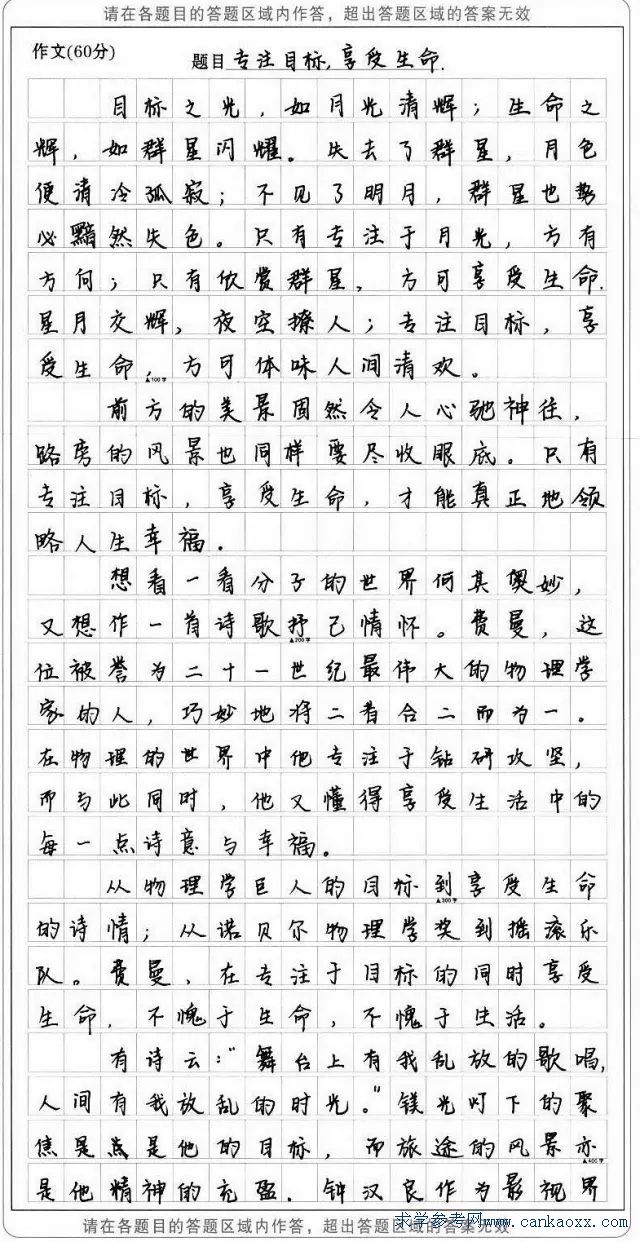 请在各题目的答题区域内作答，超出答题区域的答案无效
作文(60分)
题目 专注目标,享受生命.
目标之光，如月光清辉；生命之
辉，如群星闪耀。失去了群星，月色
便清冷孤寂；不见了明月，群星也势
必黯然失色。只有专注于月光，方有
方向；只有欣赏群星，方可享受生命.
星月交辉，夜空撩人；专注目标，享
受生命，方可体味人间清欢。
▲100字
前方的美景固然令人心驰神往，
路旁的风景也同样要尽收眼底。只有
专注目标，享受生命，才能真正地领
略人生幸福.
想看一看分子的世界何其奥妙，
又想作一首诗歌抒己情怀。费曼，这
▲200字
位被誉为二十一世纪最伟大的物理学
家的人，巧妙地将二者合二而为一。
在物理的世界中他专注于钻研攻坚，
而与此同时，他又懂得享受生活中的
每一点诗意与幸福。
从物理学巨人的目标到享受生命
▲300字
的诗情；从诺贝尔物理学奖到摇滚乐
队。费曼，在专注于目标的同时享受
生命，不愧于生命，不愧于生活。
有诗云："舞台上有我乱放的歌唱,
人间有我放乱的时光。"镁光灯下的聚
焦是点是他的目标，而旅途的风景亦
▲400字
是他精神的充盈.钟汉良作为影视界
请在各题目的答题区域内作答，超出答题区域的答案无效
求学参考网www.cankaoxx.com